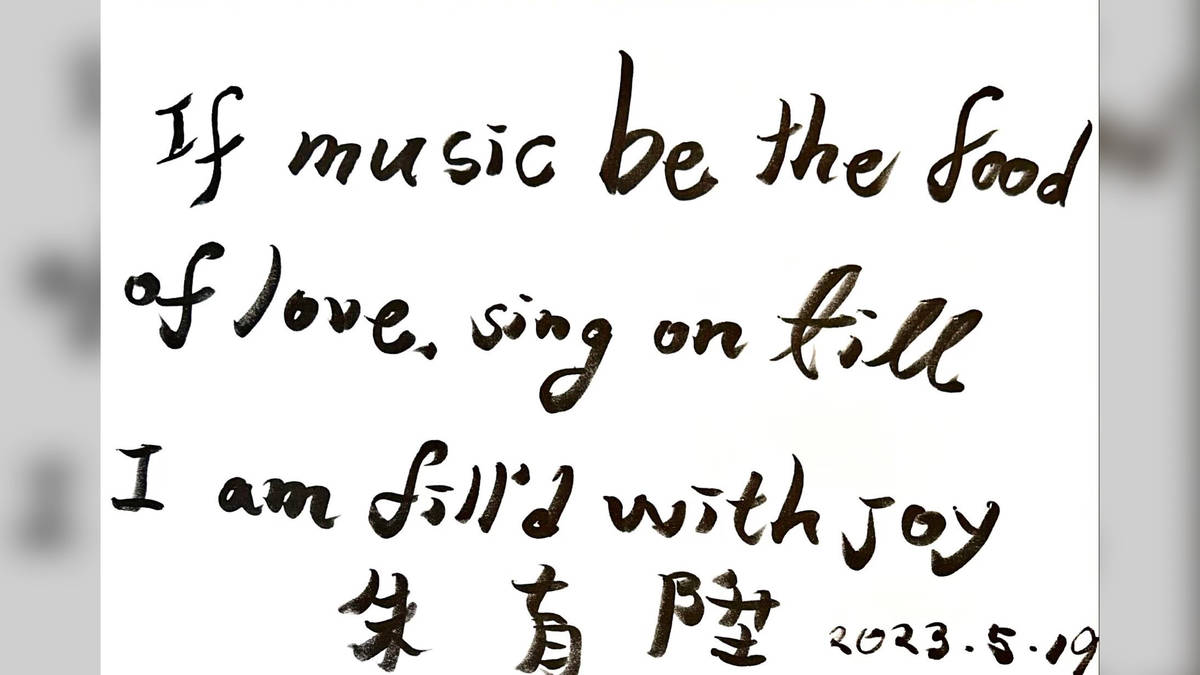 If music be the food
of love, sing on till
I am fill'd with joy
朱有陞 2023.5.19